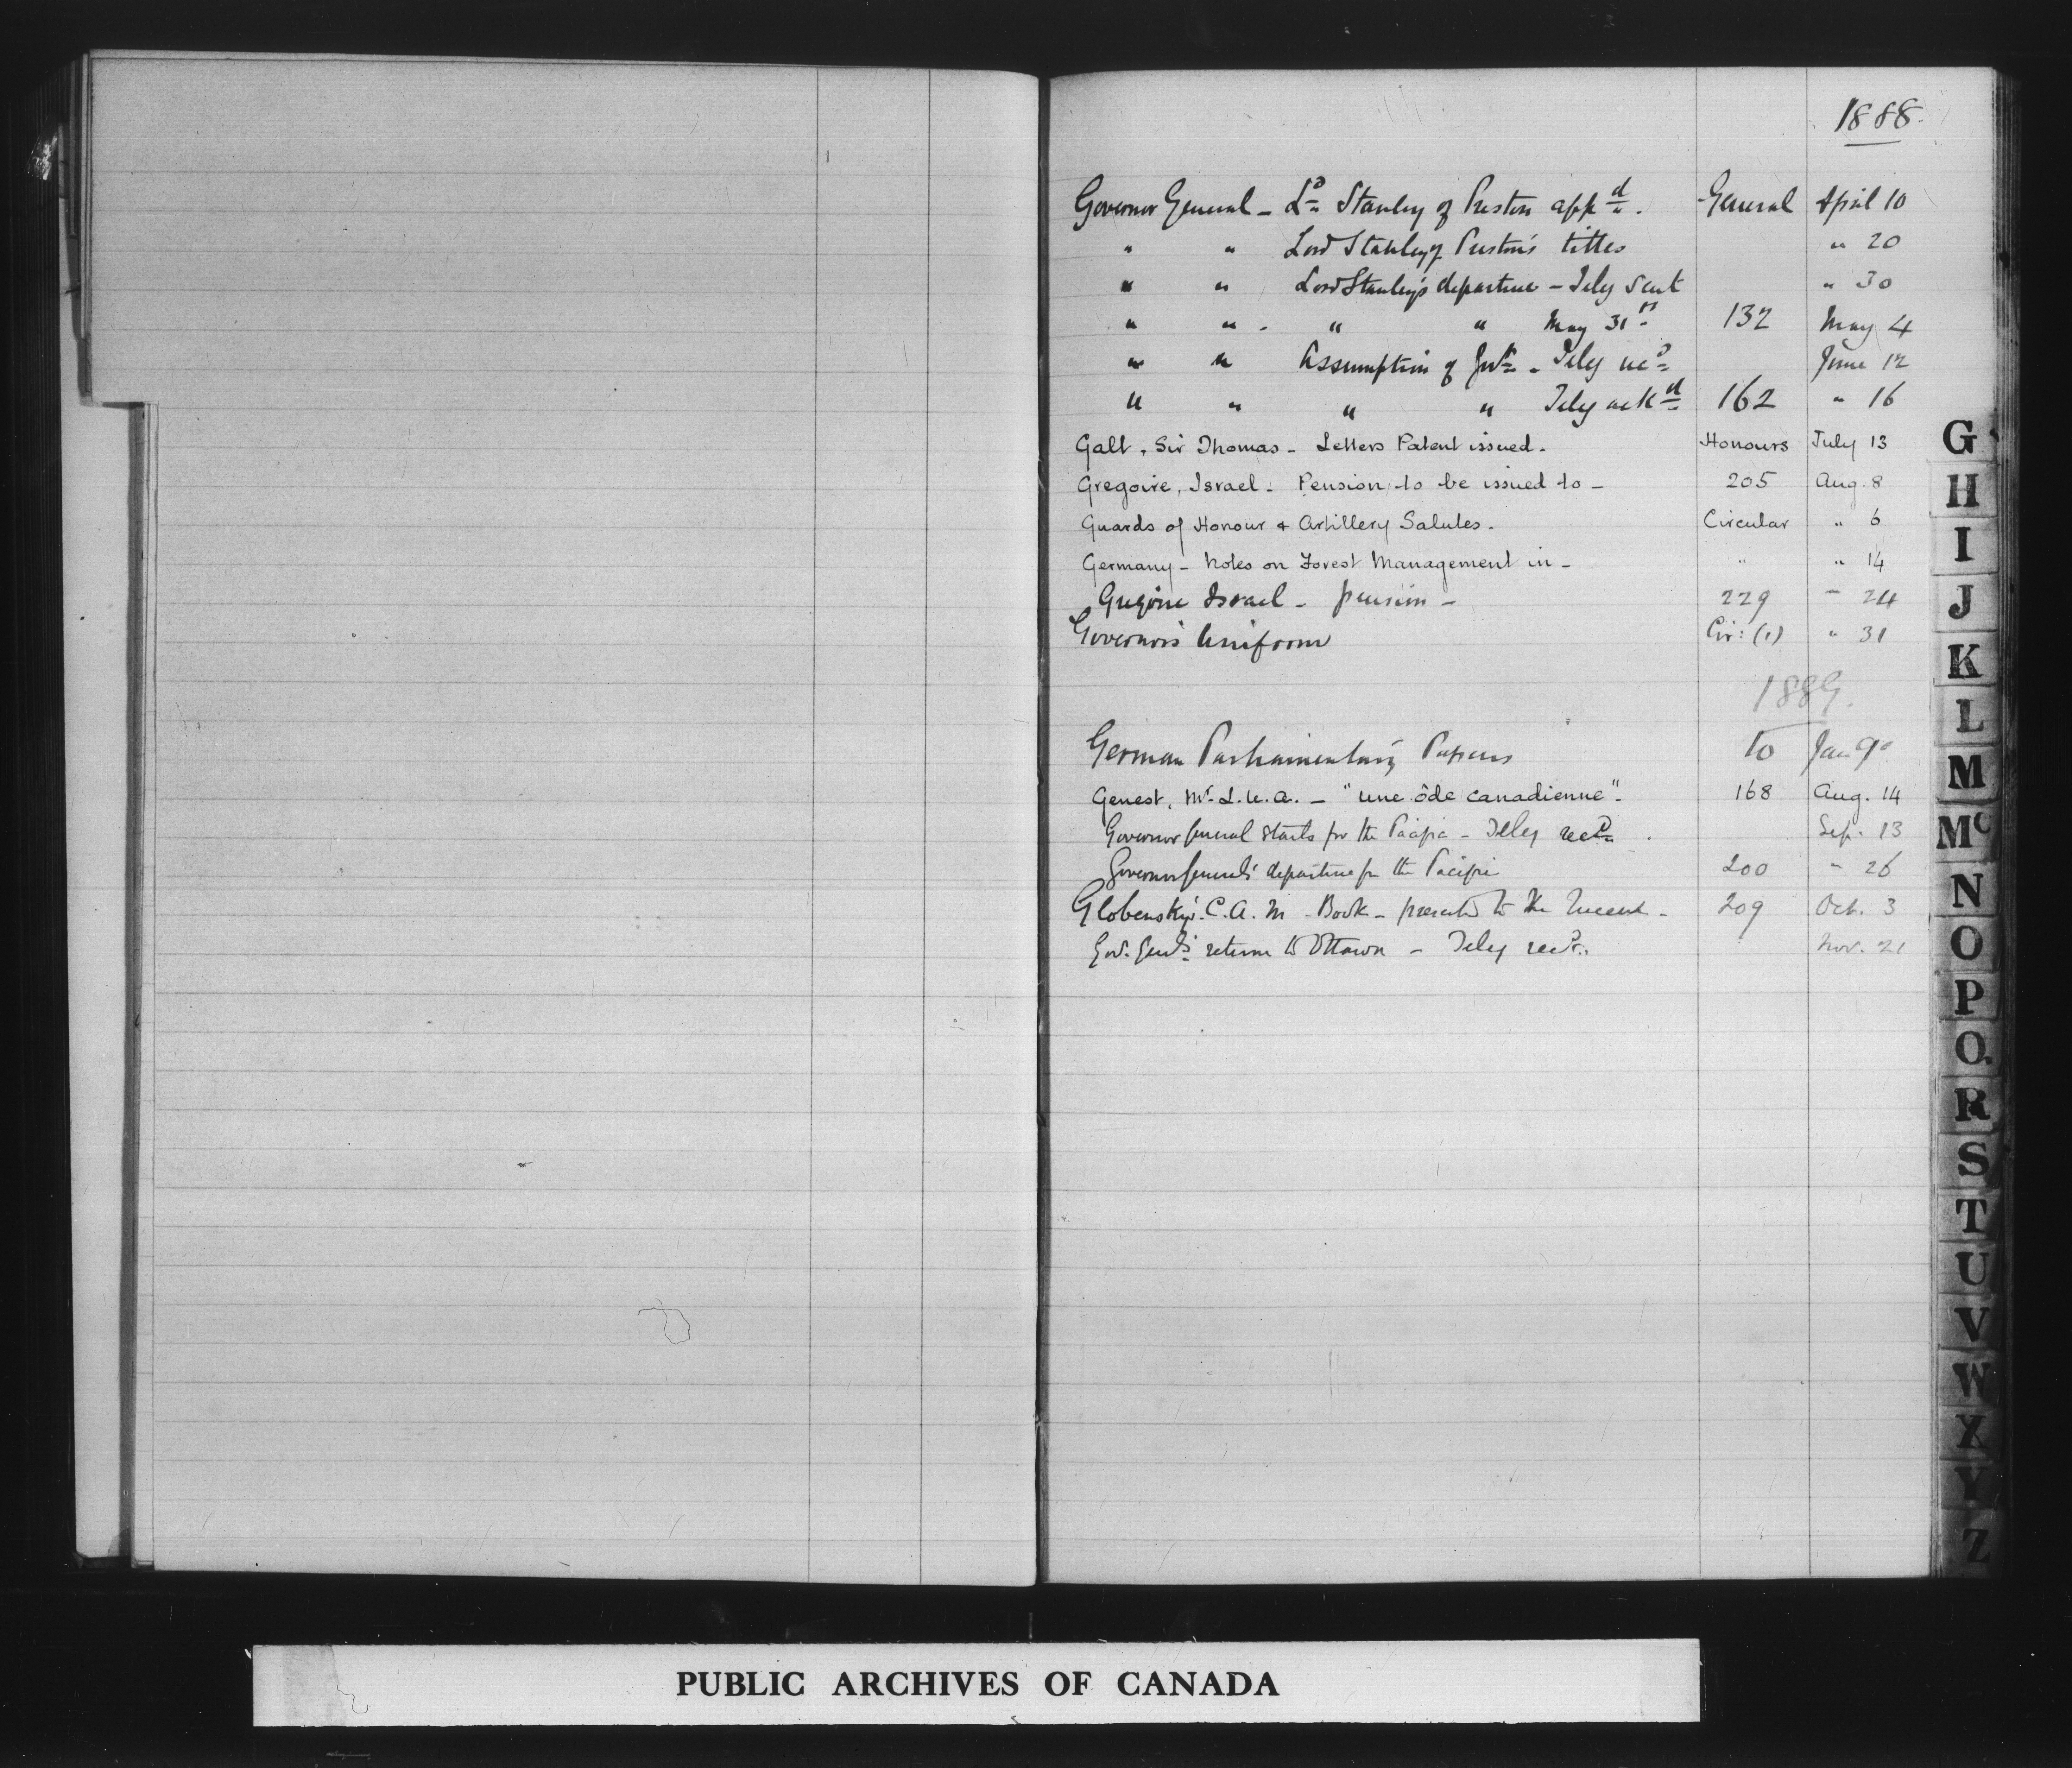 1888.
Governor General - Ld Stanley of Preston appd. General April 10
" " Lord Stanley of Preston's titles " 20
" " Lord Stanley's departure - Teleg sent " 30
" " - " " May 31st 132 May 4
" " Assumption of Govt - Teleg recd June 12
" " " " Teleg ackd 162 " 16
Galt, Sir Thomas - Letters Patent issued. Honours July 13
Gregoire, Israel - Pension to be issued to - 205 Aug. 8
Guards of Honour & Artillery Salutes. Circular " 6
Germany - Notes on Forest Management in - " " 14
Gregoire Israel - pension - 229 " 24
Governors Uniform Cir: (1) " 31
1889.
German Parliamentary Papers to Jan 9
Genest, Mr. L.U.A. - "une ôde canadienne". 168 Aug. 14
Governor General starts for the Pacific - Teleg recd. Sep. 13
Governor General's departure for the Pacific 200 " 26
Globensky. C.A.M - Book - presented to the Queen - 209 Oct. 3
Gov. Genl's return to Ottawa - Teleg recd. Nov. 21
G
H
I
J
K
L
M
Mc
N
O
P
Q.
R
S
T
U
V
W
X
Y
Z
PUBLIC ARCHIVES OF CANADA